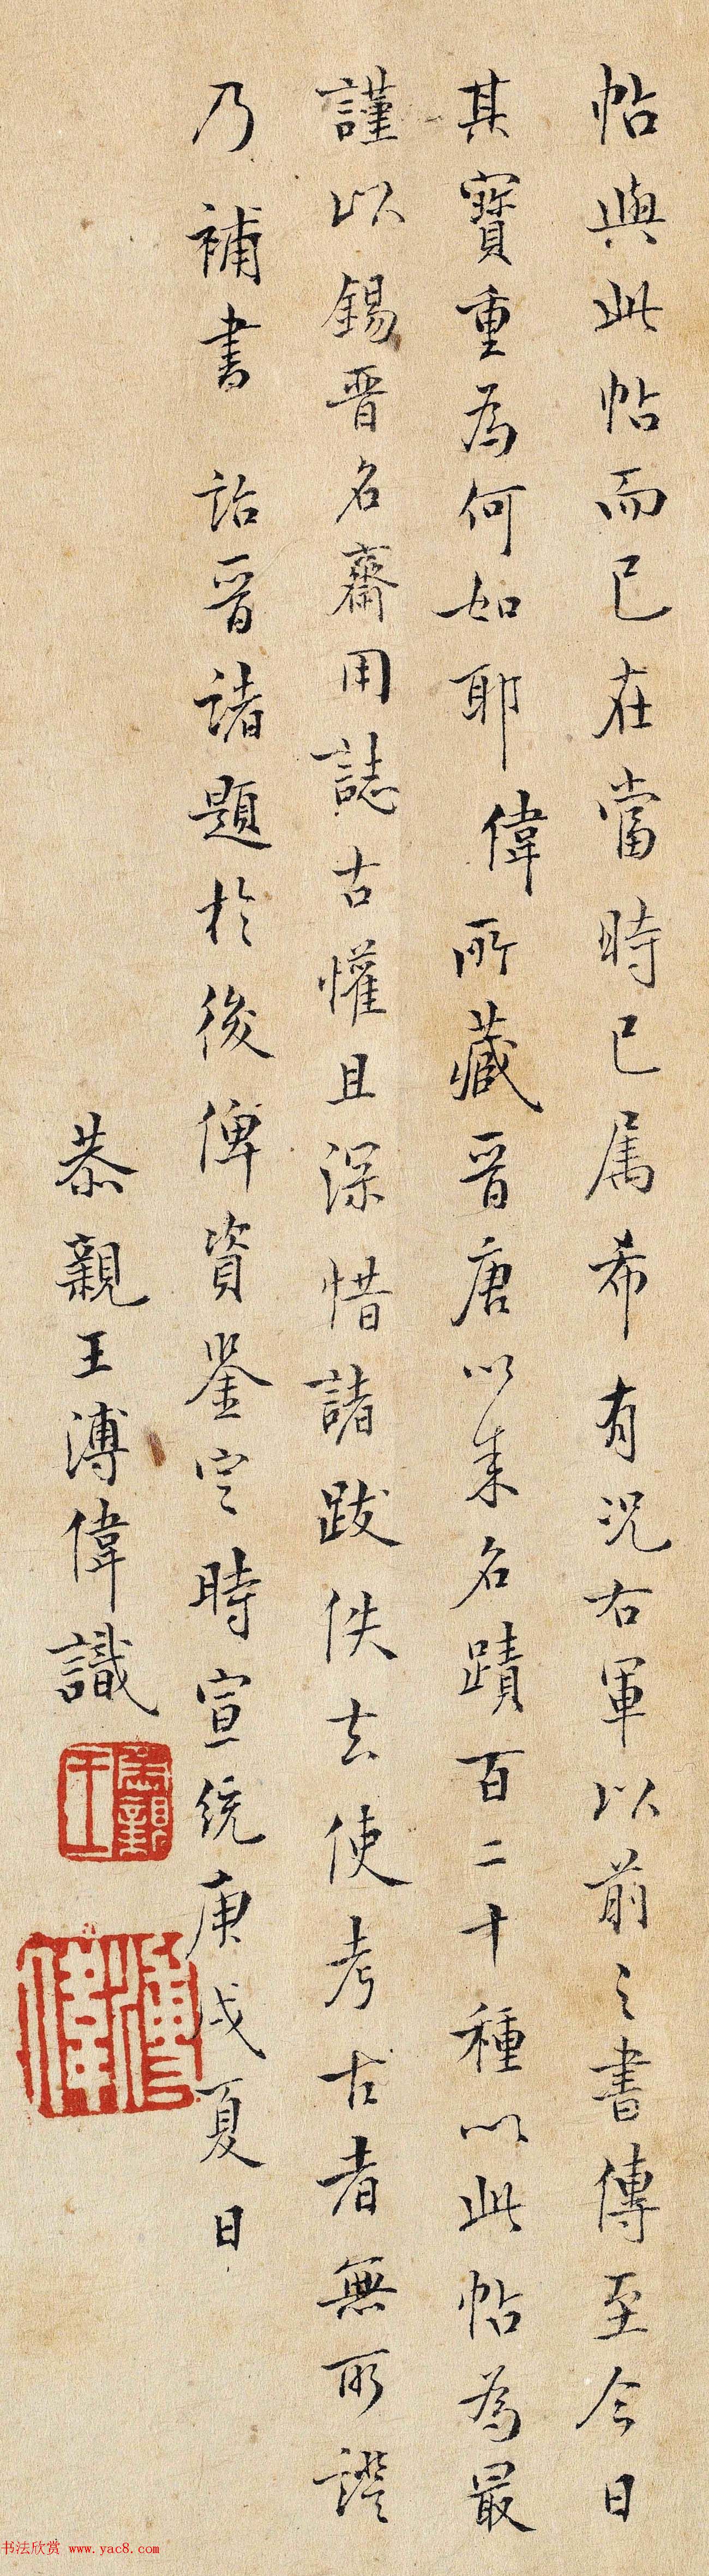 帖與此帖而已在當時已属希有況右軍以前之書傳至今日
其寶重為何如耶偉所藏晋唐以来名蹟百二十種以此帖為最
謹以錫晋名齋用誌古懽且深惜諸跋佚去使考古者無所證
乃補書詒晋諸題於後俾資鉴定時宣統庚戌夏日
恭親王溥偉識
恭親王
溥偉
书法欣赏 www.yac8.com